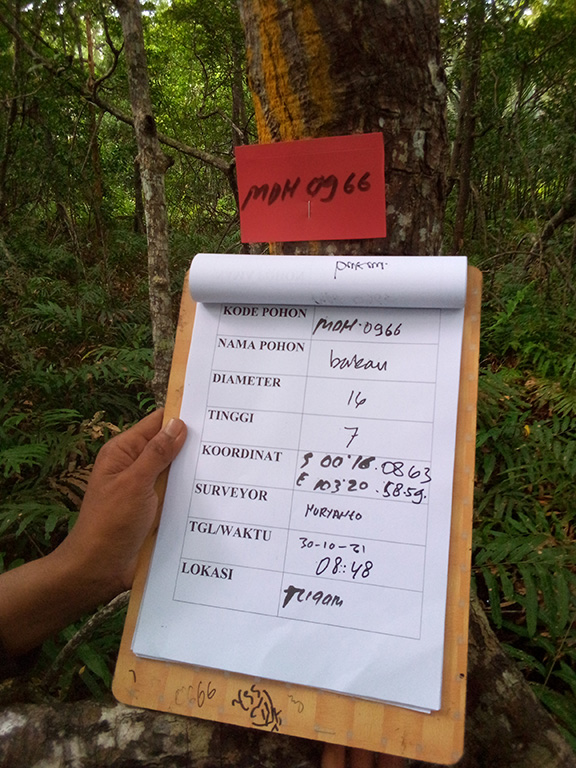 MDH 0966
KODE POHON MDH.0966
NAMA POHON bakau
DIAMETER 14
TINGGI 7
KOORDINAT S 00°18.0863
E 103°20.58.59.
SURVEYOR NURYANTO
TGL/WAKTU 30-10-21
08:48
LOKASI
0966